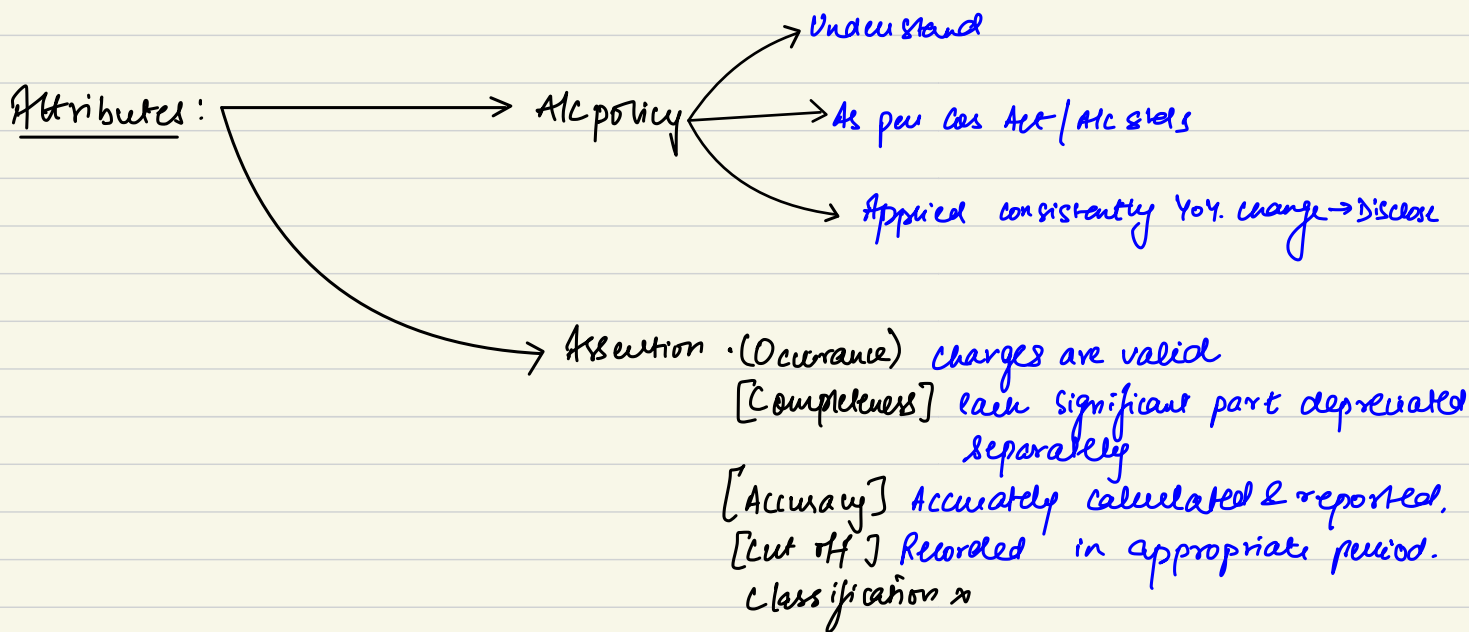 Understand
Attributes: A/c policy
As per Cos Act/A/c stds
Applied consistently YoY. change→Disclose
Assertion ·(Occurrance) charges are valid
[Completeness] each significant part depreciated
separately
[Accuracy] Accurately calculated & reported.
[Cut off] Recorded in appropriate period.
Classification ×